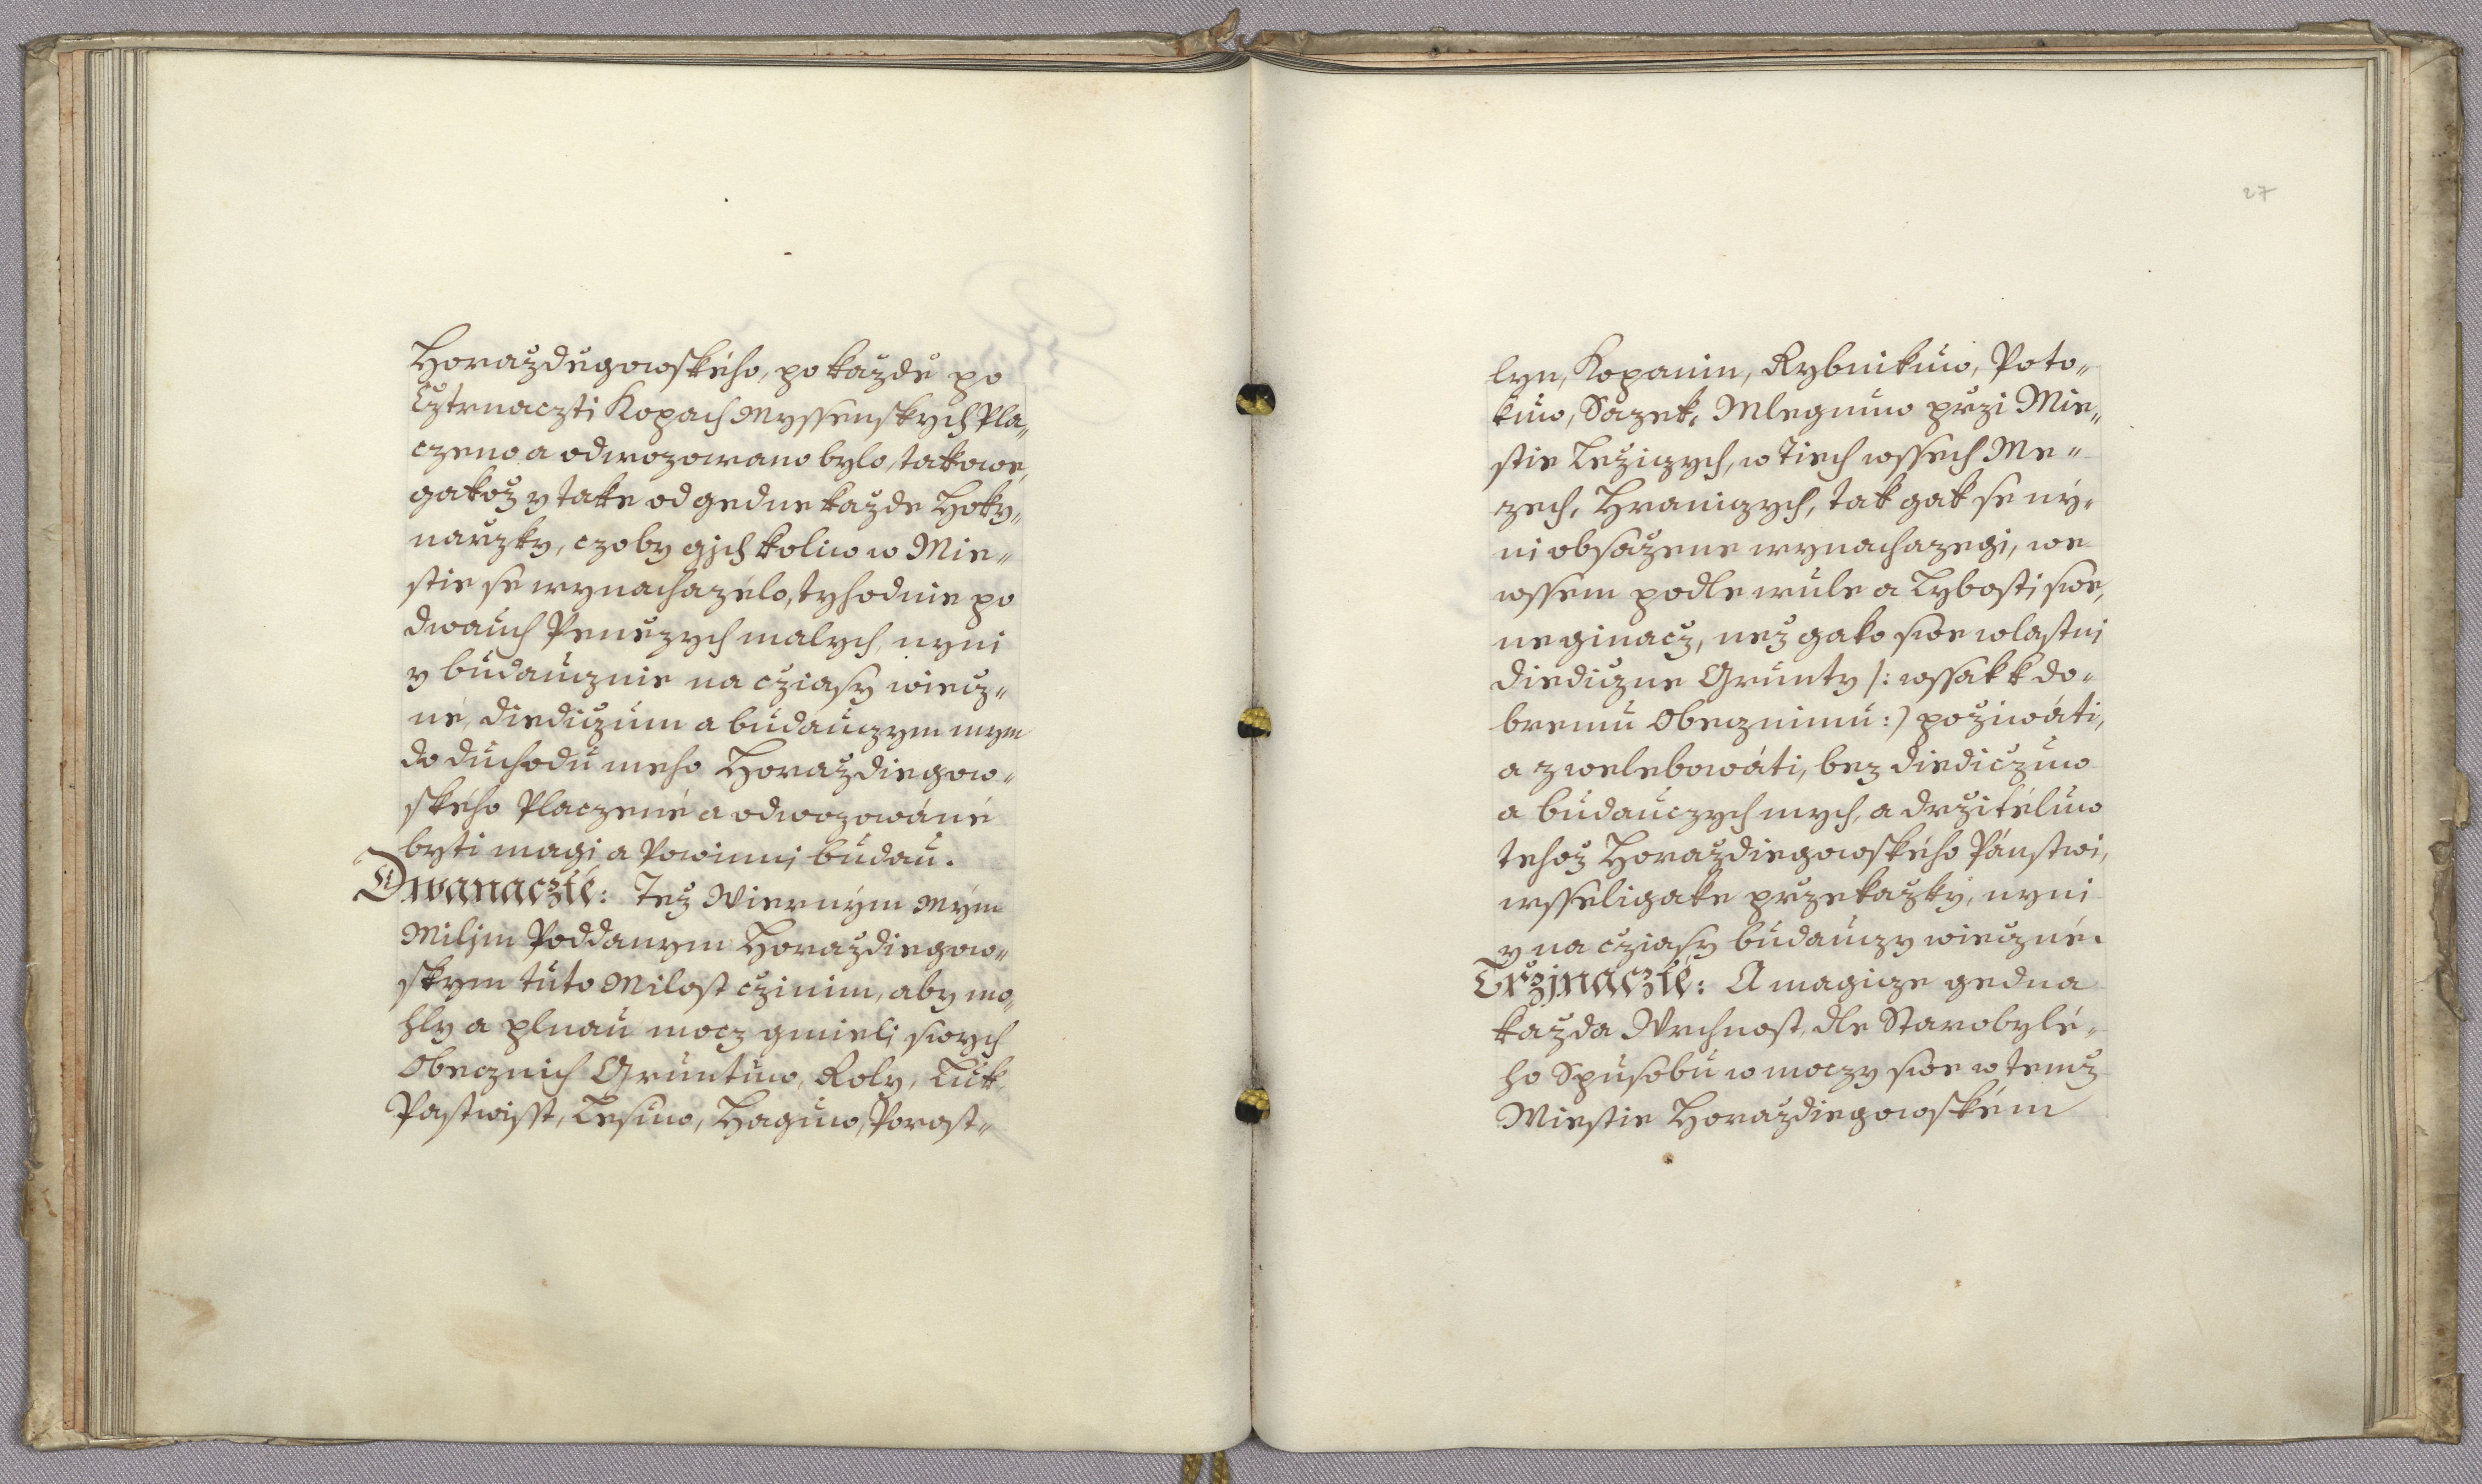 Horaždegowského, po každé po
Cztrnaczti Kopach Myssenskych Pla„
czeno a odwozowano bylo, takowé,
gakož y take od gedne každe Hoky„
narzky, czoby gjch koliw w Mie„
stie se wynachazélo, tyhodnie po
dwauch Penězych malych, nyni
y budaucznie na cziasy wiecz„
né, diediczum a budauczym mym
do duchodu meho Horaždiegow„
ského Placzené a odwozowáné
byti magi a Powinni budau.
Dwanaczté: Tež Wierným Mým
Miljm Poddanym Horaždiegow„
skym tuto Milost cžinim, aby mo„
hly a plnau mocz gmieli swych
Obecznich Gruntuw, Roly, Luk,
Pastwisst, Lesuw, Haguw, Porost„
27
lyn, Kopanin, Rybnikuw, Poto„
kuw, Sazek, Mlegnuw przi Mie„
stie Ležiczych, w Tiech wssech Me„
zech, Hraniczych, tak gak se ny„
ni obsažene wynachazegi, we
wssem podle wule a Lybosti swé,
ne ginacz, než gako swe wlastni
diediczne Grunty /: wssak k do„
bremu Obecznimu :) požiwáti,
a zwelebowáti, bez diediczuw
a budauczych mych, a držitéluw
tehož Horaždiegowského Pánstwi,
wsseligake przekažky, nyni
y na cziasy budauczy wieczné.
Trzjnaczté: A magicze gedna
každa Wrchnost, dle Starobylé„
ho Spusobu w moczy swe w temž
Miestie Horaždiegowském